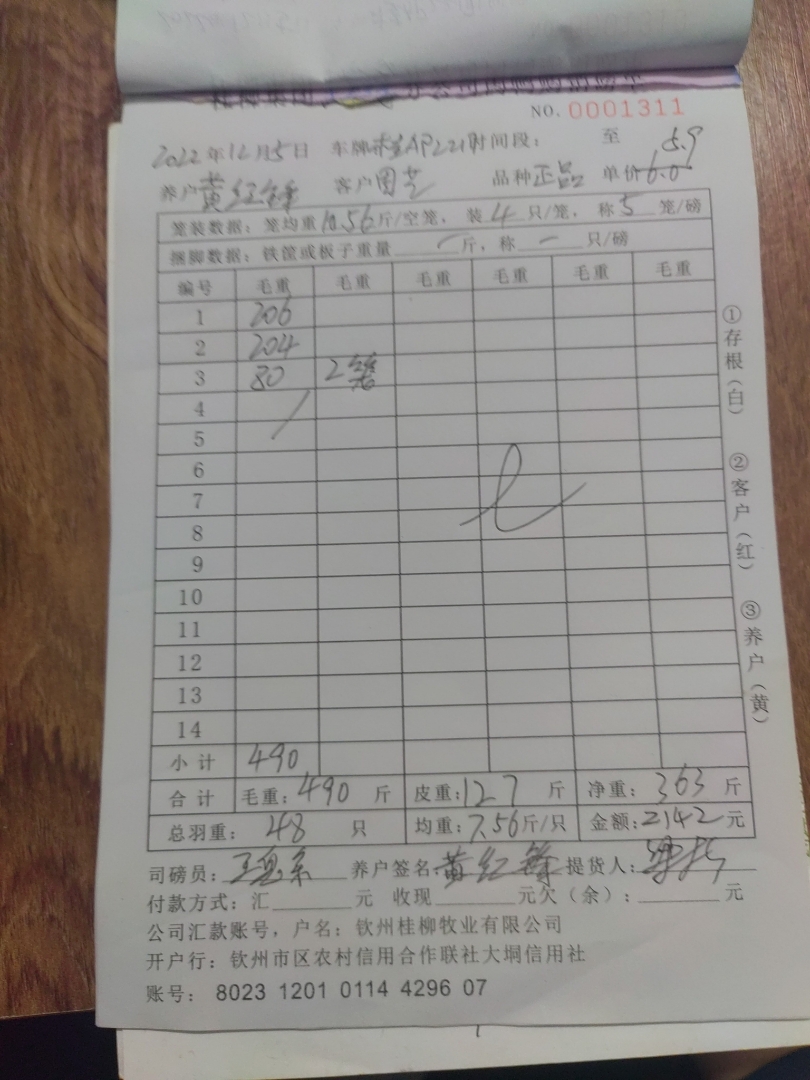 NO. 0001311
2022年12月5日 车牌 AP221 时间段： 至
5.9
养户 黄红锋 客户 品种 正品 单价 6.0
笼装数据：笼均重10.56斤/空笼，装4只/笼，称5笼/磅
捆脚数据：铁筐或板子重量 斤，称 只/磅
编号 毛重 毛重 毛重 毛重 毛重 毛重
1 206
2 204
3 80 2笼
4
5
6
7
8
9
10
11
12
13
14
小计 490
合计 毛重：490 斤 皮重：127 斤 净重：363 斤
总羽重：48 只 均重：7.56斤/只 金额：2142元
①存根（白）
②客户（红）
③养户（黄）
司磅员： 养户签名：黄红锋 提货人：
付款方式：汇 元 收现 元欠（余）： 元
公司汇款账号，户名：钦州桂柳牧业有限公司
开户行：钦州市区农村信用合作联社大垌信用社
账号： 8023 1201 0114 4296 07